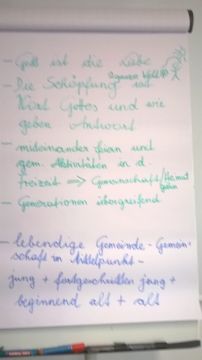 - Gott ist die Liebe
- Die Schöpfung ist
Wort Gottes und wir
geben Antwort
- miteinander feiern und
gem. Aktivitäten in d.
freizeit => Gemeinschaft/Heimat
geben
- Generationen übergreifend
- lebendige Gemeinde - Gemein-
schaft im Mittelpunkt -
jung + fortgeschritten jung +
beginnend alt + alt